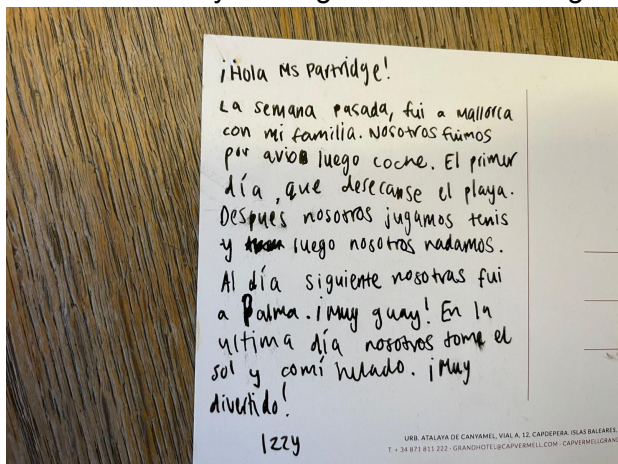 ¡Hola Ms Partridge!
La semana pasada, fui a Mallorca
con mi familia. Nosotros fuimos
por avion luego coche. El primer
día, que desecanse el playa.
Despues nosotros jugamos tenis
y luego nosotros nadamos.
Al día siguiente nosotras fui
a Palma. ¡Muy guay! En la
ultima día nosotros tome el
sol y comí helado. ¡Muy
divertido!
Izzy
URB. ATALAYA DE CANYAMEL, VIAL A, 12, CAPDEPERA, ISLAS BALEARES,
T. + 34 871 811 222 - GRANDHOTEL@CAPVERMELL.COM - CAPVERMELLGRAN